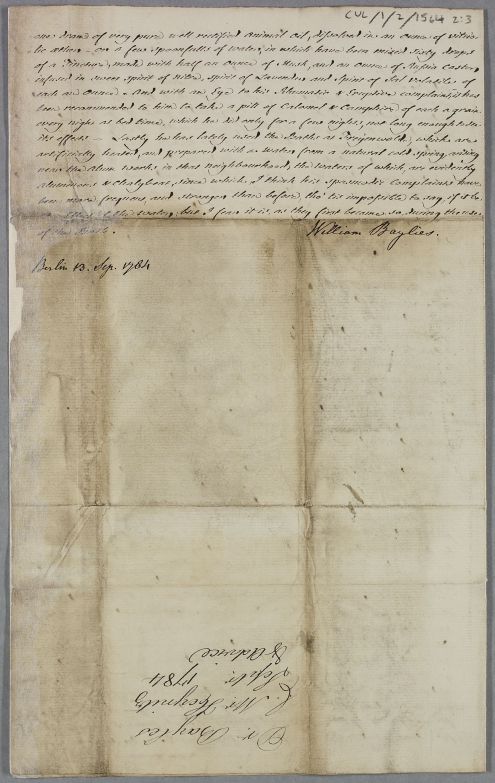 CUL/1/2/1564 2:3
one dram of very pure well rectified animal oil, dissolved in an ounce of vitrio-
lic æther — or a few spoonfulls of water, in which have been mixed sixty drops
of a Tincture, made with half an ounce of Musk, and an ounce of Russia Castor,
infused in sweet spirit of nitre, spirit of Lavender and Spirit of Sal Volatile of
each an Ounce. And with an Eye to his Rheumatic & complaints has
been recommended to him to take a pill of Calomel & Camphire of each a grain
every night at bed time, which he did only for a few nights, not long enough to
its effects — Lastly he has lately used the Baths at Freijenwalde, which are
artificially heated, and prepared with as water from a natural cold spring rising
near the Alum works, in that neighbourhood, the waters of which are evidently
Aluminous & Chalybeat, since which I think his spasmodic complaints have
been more frequent and stronger than before, tho' tis impossible to say, if it be
water, but I fear it is, as they first became so, during the use
of the Bath.
William Baylies.
Berlin 13. Sep. 1784
Dr Baylies
Mr
Septr. 1784
& Advice